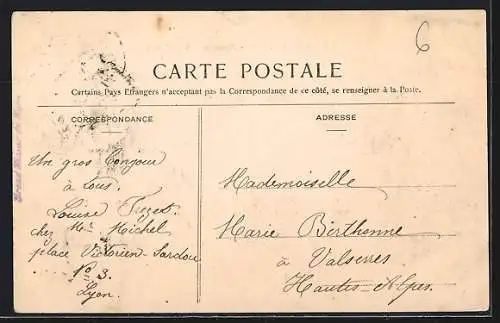 6
CARTE POSTALE
Certains Pays Etrangers n'acceptant pas la Correspondance de ce côté, se renseigner à la Poste.
CORRESPONDANCE
Un gros bonjour
à tous.
Louise
chez Mme Michel
place Victorien-Sardou
No 3.
Lyon.
ADRESSE
Mademoiselle
Marie Berthonne
à Valserres
Hautes-Alpes.